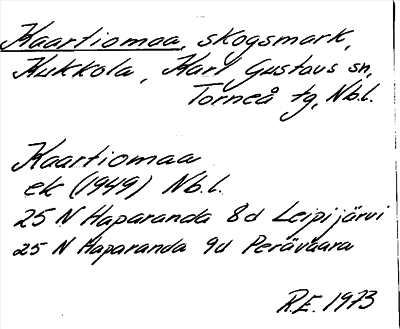 Kaartiomaa, skogsmark,
Kukkola, Karl Gustavs sn,
Torneå tg, Nb.l.
Kaartiomaa
ek (1949) Nb.l.
25 N Haparanda 8d Leipijärvi
25 N Haparanda 9d Perävaara
R.E. 1973